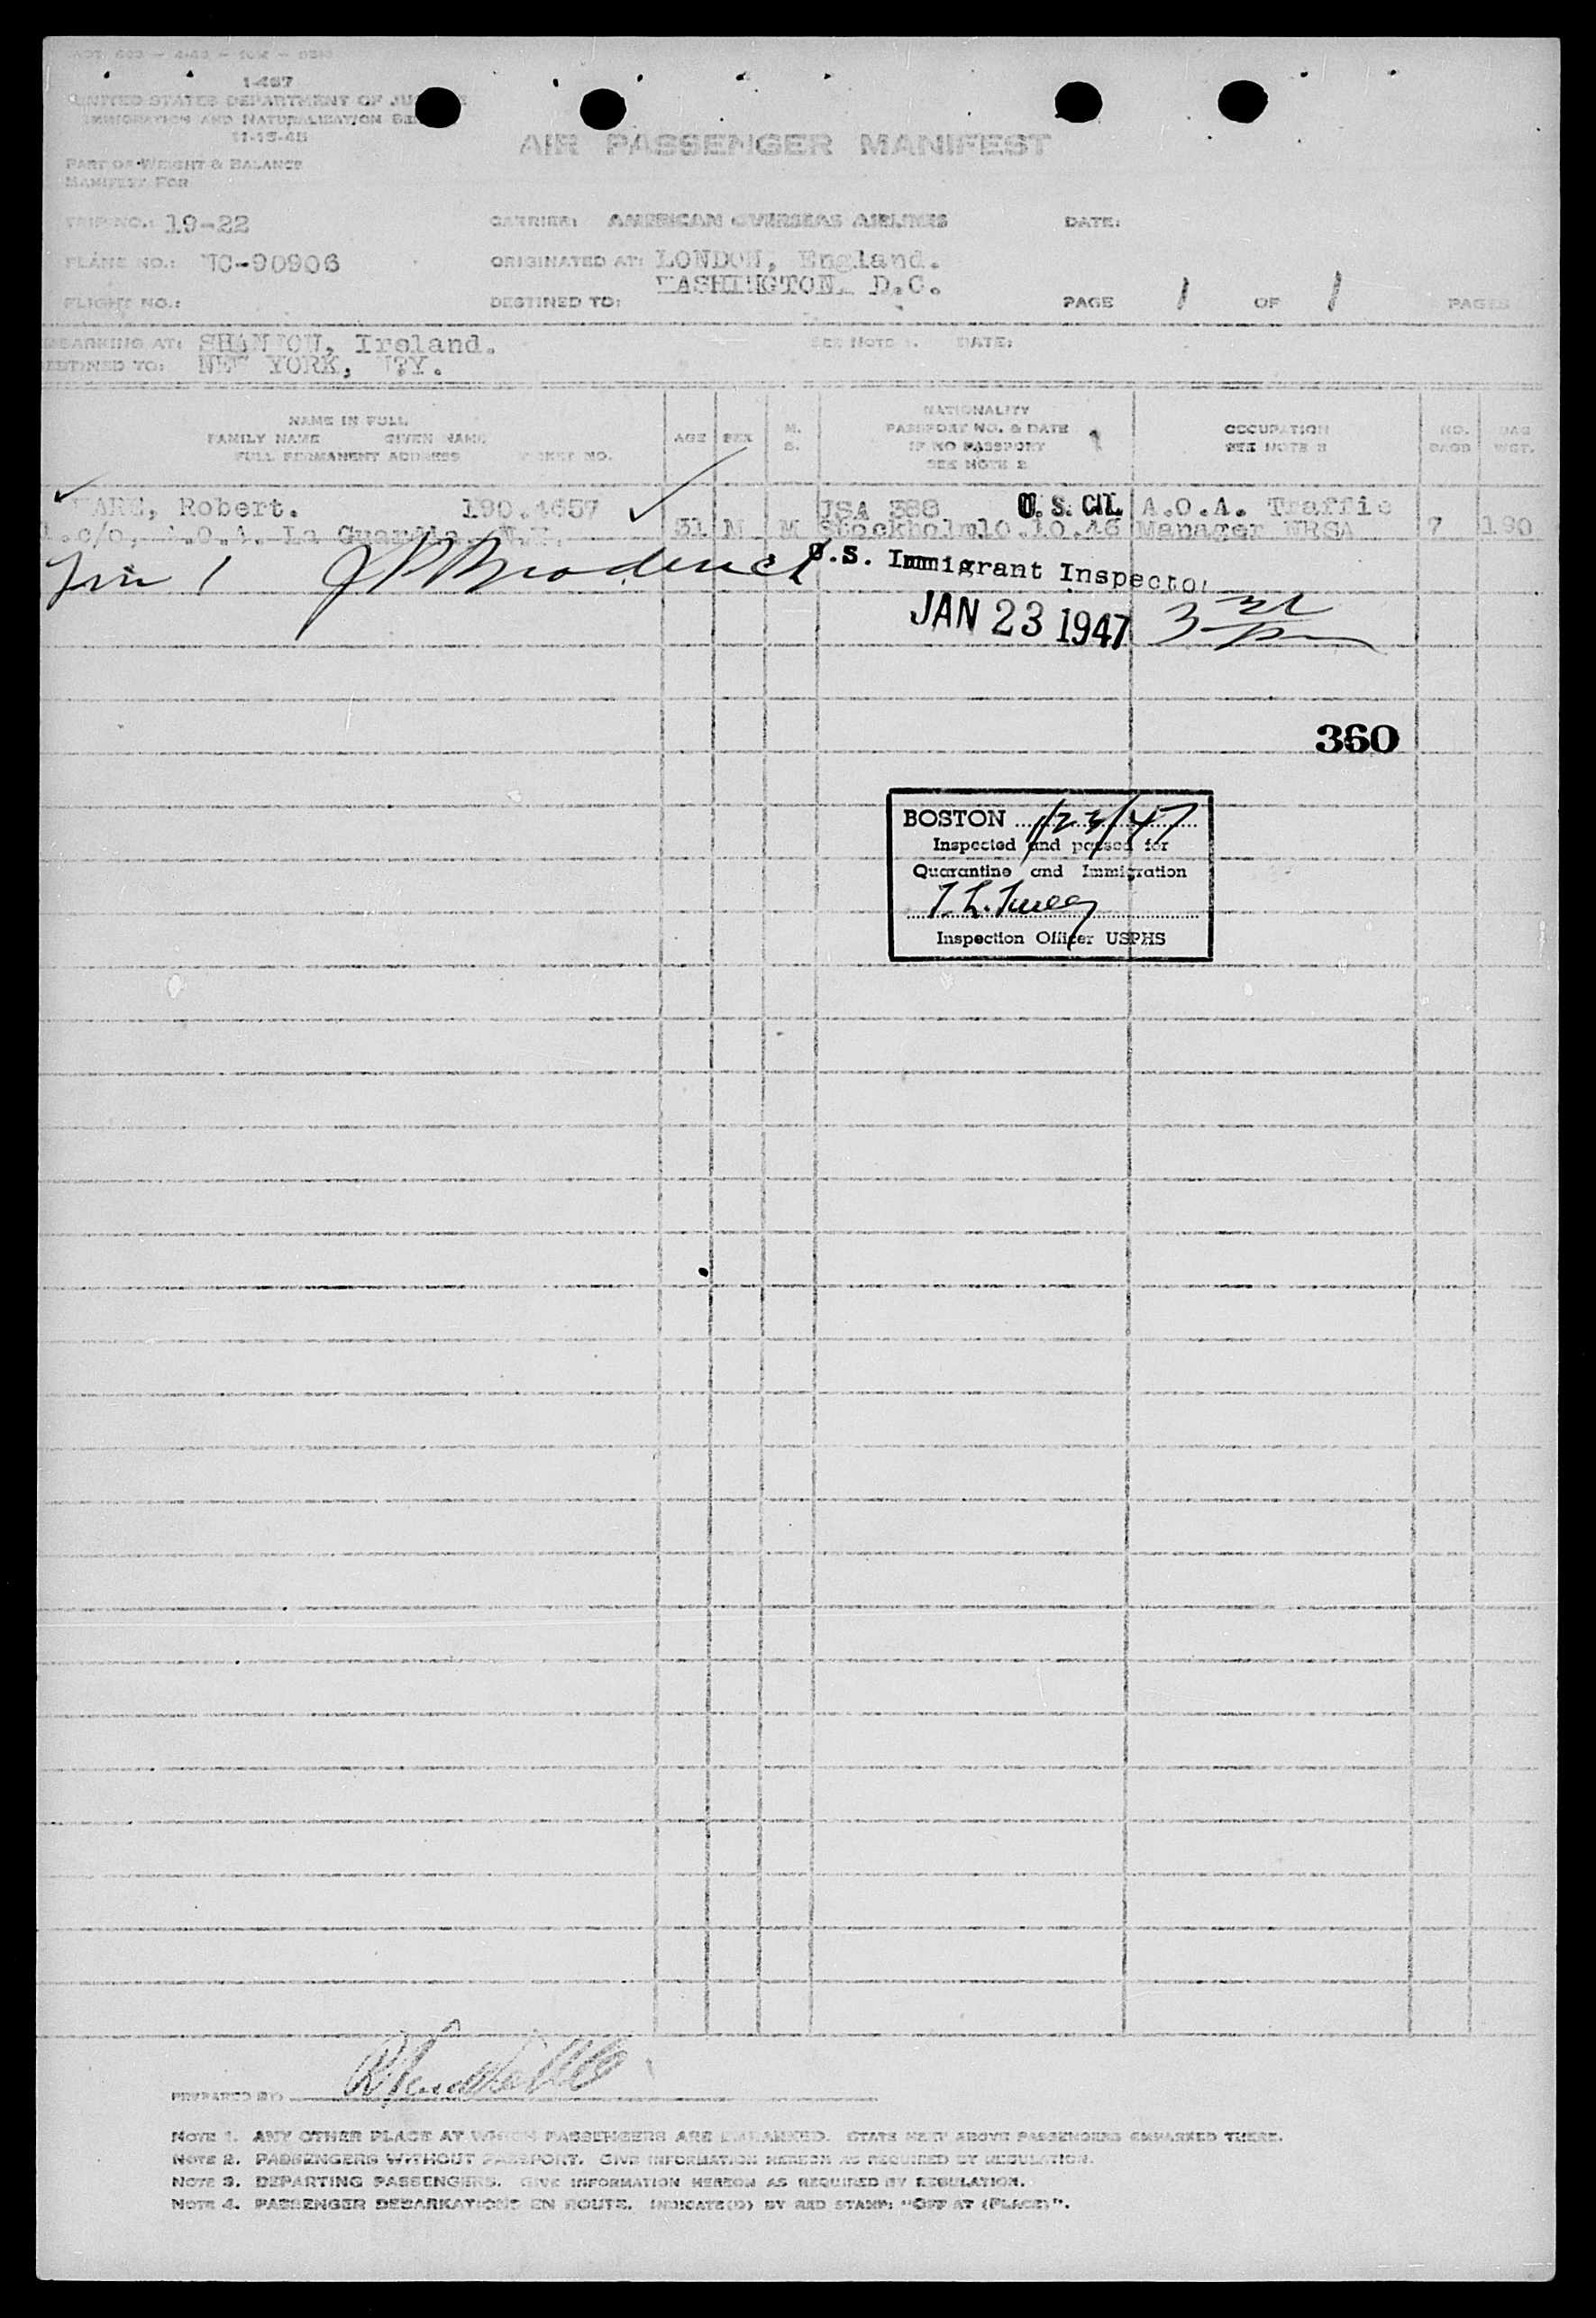 1-467
UNITED STATES DEPARTMENT OF
IMMIGRATION AND NATURALIZATION
11-15-45
AIR PASSENGER MANIFEST
PART OF WEIGHT & BALANCE
MANIFEST FOR
TRIP NO.: 19-22 CARRIER: AMERICAN OVERSEAS AIRLINES DATE:
PLANE NO.: NC-90906 ORIGINATED AT: LONDON, England.
FLIGHT NO.: DESTINED TO: WASHINGTON. D.C. PAGE 1 OF 1 PAGES
EMBARKING AT: SHANNON, Ireland. SEE NOTE 1. DATE:
DESTINED TO: NEW YORK, N?Y.
NAME IN FULL
FAMILY NAME GIVEN NAME
FULL PERMANENT ADDRESS TICKET NO.
AGE SEX M. S.
NATIONALITY
PASSPORT NO. & DATE
IF NO PASSPORT
SEE NOTE 2
OCCUPATION
SEE NOTE 3
NO. BAGS
BAG WGT.
Robert. 190.4657 USA 388 U.S. CIT. A.O.A. Traffic
1.c/o, A.O.A. La Guardia, N.Y. 31 M M Stockholm10.10.46 Manager NRSA 7 190
1 J P Broderick U.S. Immigrant Inspector
JAN 23 1947 3
360
BOSTON 1/23/47
Inspected and passed for
Quarantine and Immigration
Inspection Officer USPHS
PREPARED BY:
NOTE 1. ANY OTHER PLACE AT WHICH PASSENGERS ARE EMBARKED. STATE NEXT ABOVE PASSENGERS EMBARKED THERE.
NOTE 2. PASSENGERS WITHOUT PASSPORT. GIVE INFORMATION HEREON AS REQUIRED BY REGULATION.
NOTE 3. DEPARTING PASSENGERS. GIVE INFORMATION HEREON AS REQUIRED BY REGULATION.
NOTE 4. PASSENGER DEBARKATIONS EN ROUTE. INDICATE(D) BY RED STAMP: "OFF AT (PLACE)".